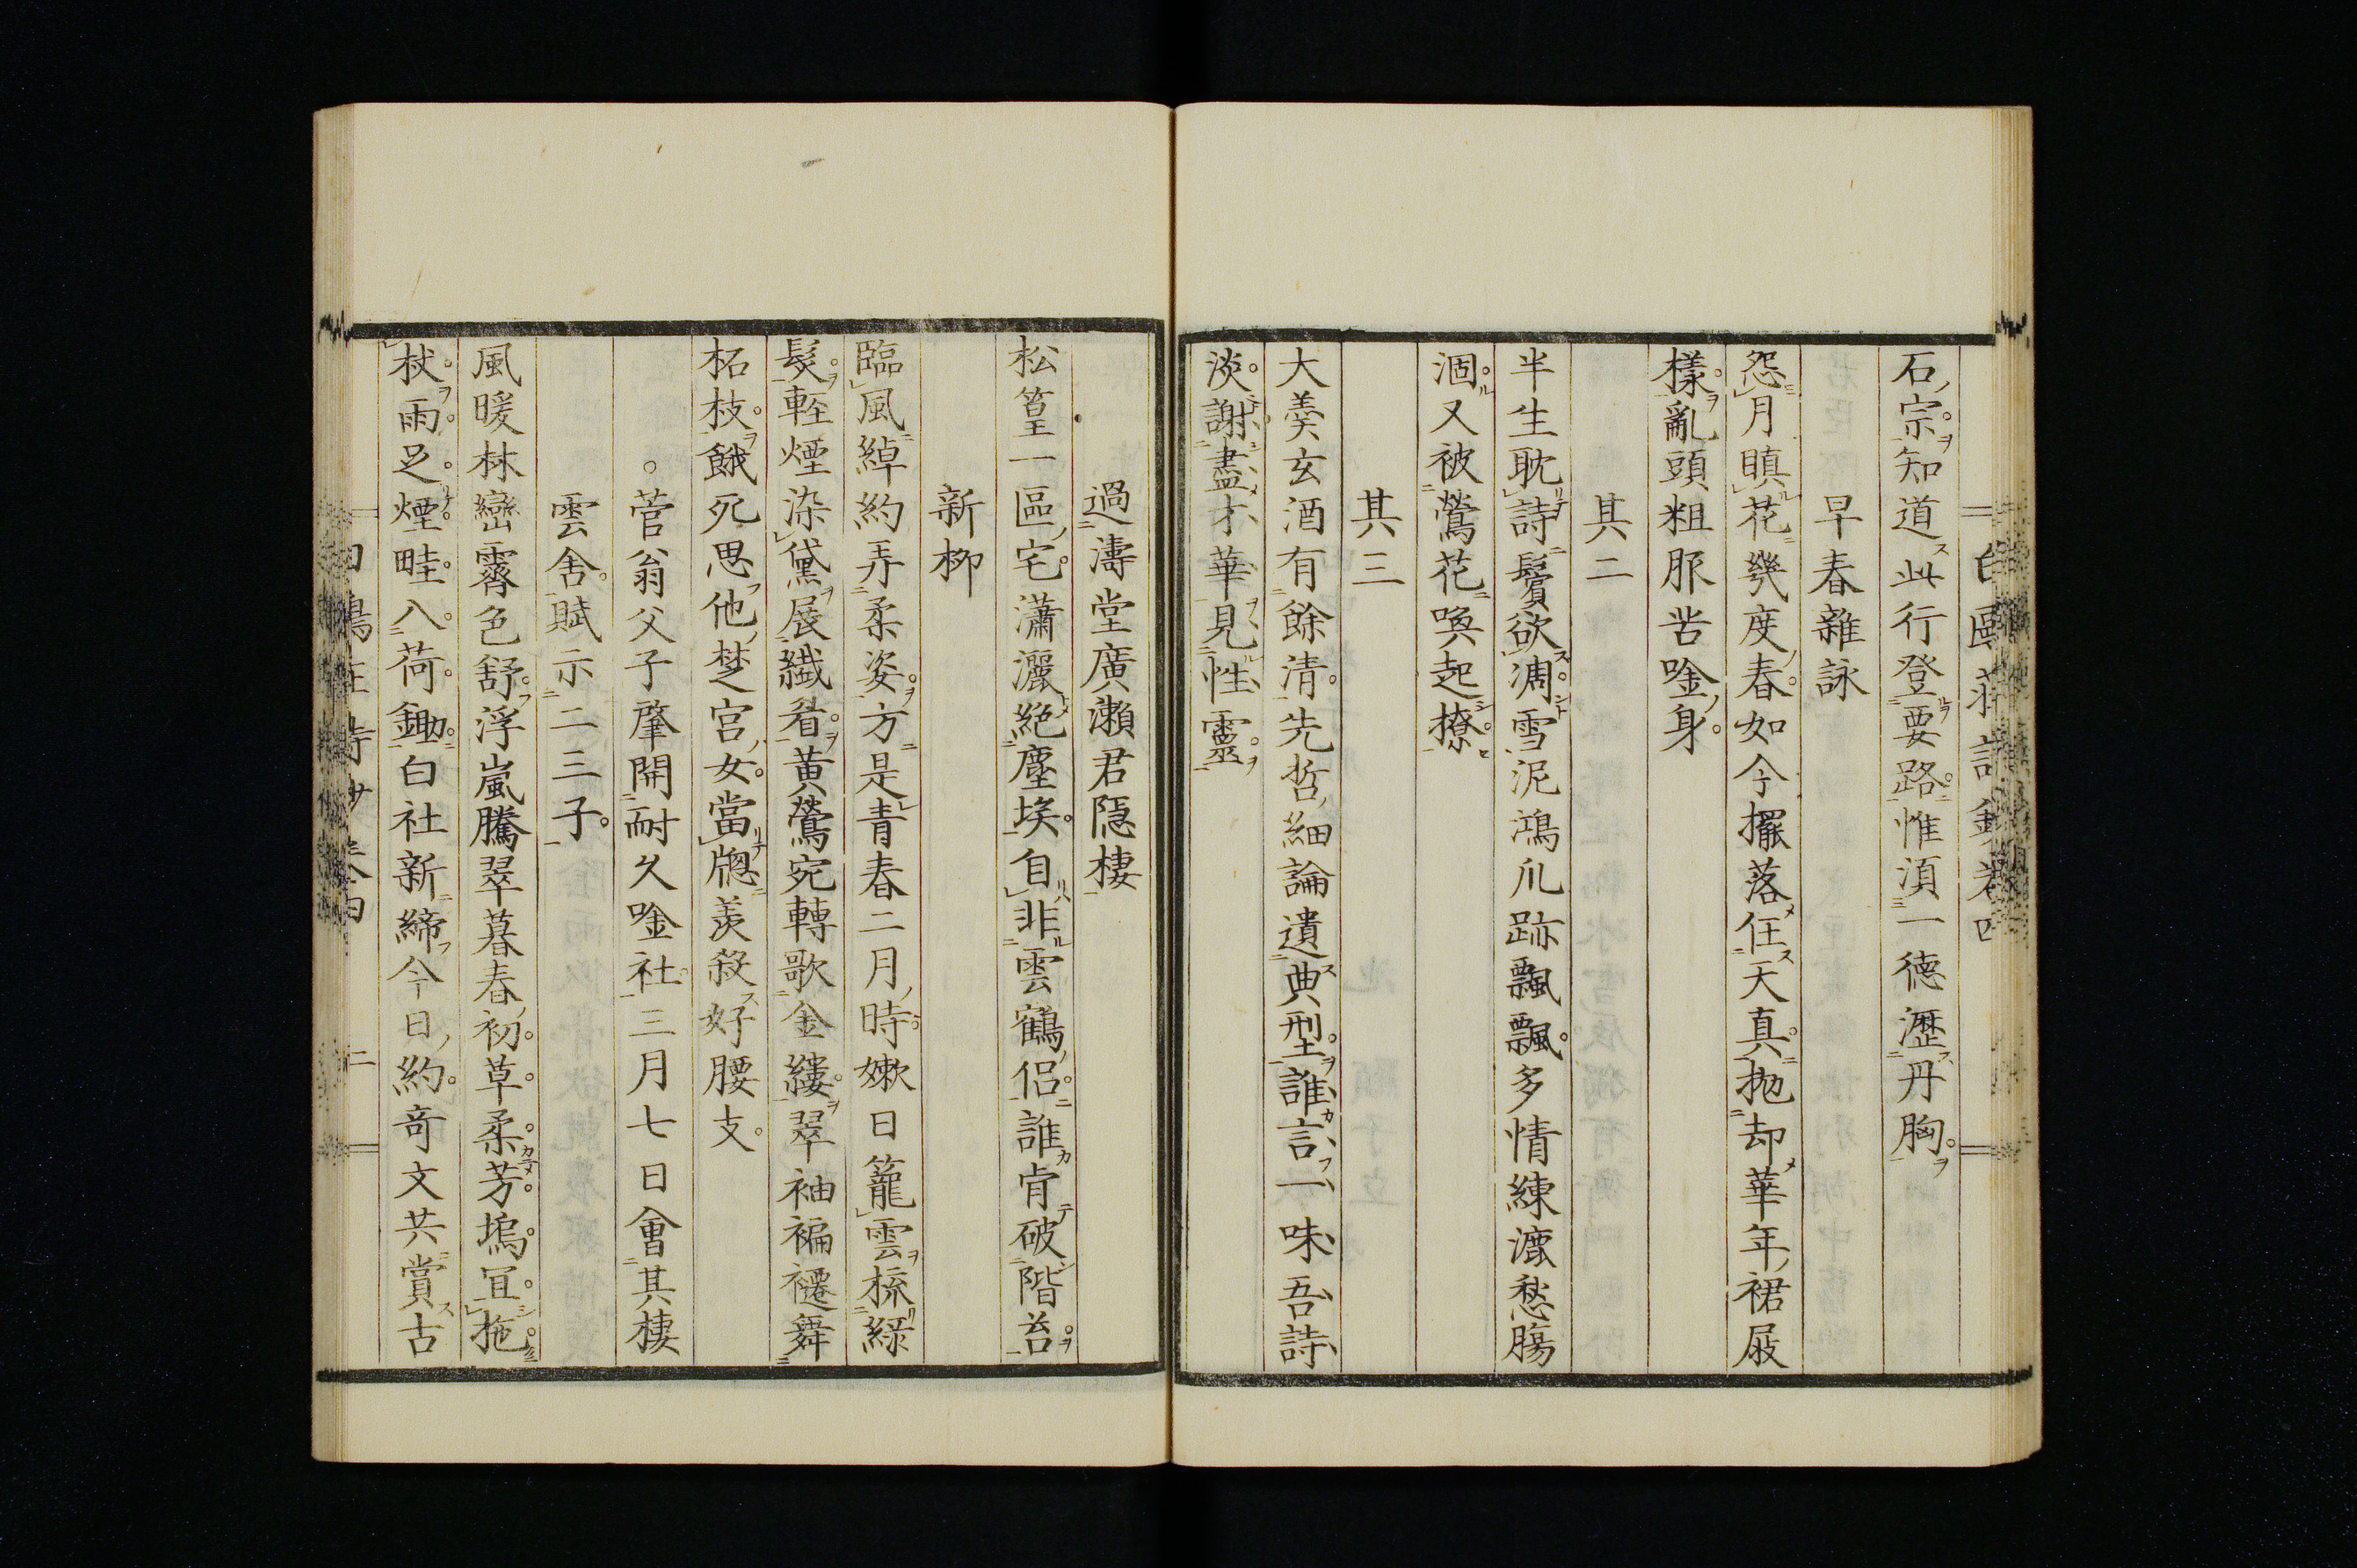 石宗知道此行登要路惟須一德瀝丹胸
早春雜詠
怨月瞋花幾度春如今擺落任天真抛却華年裙屐
樣亂頭粗服苦唫身
其二
半生耽詩鬢欲凋雪泥鴻爪跡飄飄多情練漉愁膓
涸又被鶯花喚起撩
其三
大羹玄酒有餘清先哲細論遺典型誰言一味吾詩
淡謝盡才華見性靈
過濤堂廣瀬君隠棲
松篁一區宅瀟灑絶塵埃自非雲鶴侶誰肯破階苔
新柳
臨風綽約弄柔姿方是青春二月時嫩日籠雲梳緑
髮輕煙染黛展纖眉黄鶯宛轉歌金縷翠袖褊褼舞
柘枝餓死思他楚宮女當牕羨殺好腰支
菅翁父子肇開耐久唫社三月七日會其棲
雲舍賦示二三子
風暖林巒霽色舒浮嵐騰翠暮春初草柔芳塢宜拖
杖雨足煙畦入荷鋤白社新締今日約竒文共賞古
二